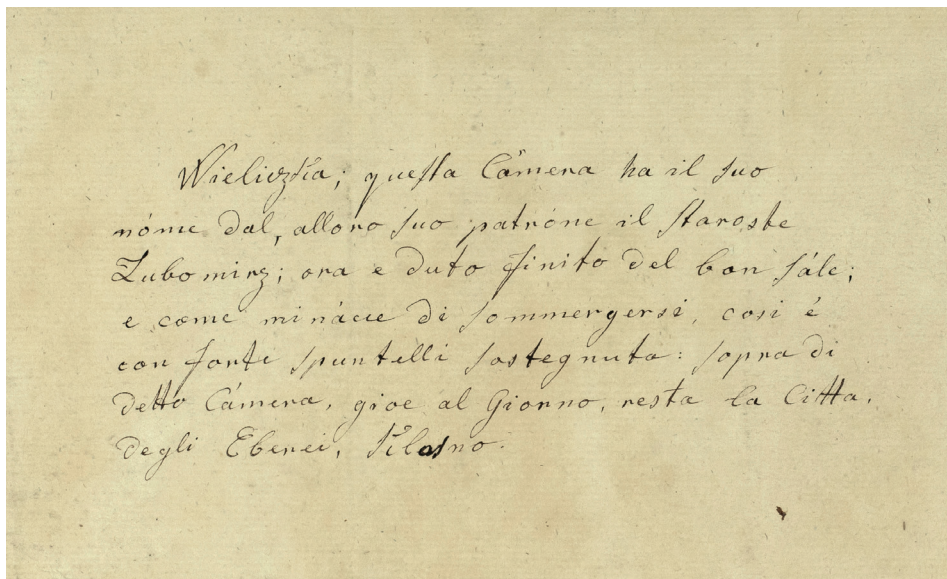 Wieliczka; questa Cámera ha il suo
nóme dal, alloro suo patróne il Staroste
Lubomirz; ora e duto finito del bon sále;
e come mináccie di sommergersi, cosi é
con forte spuntelli sostegnuta: sopra di
detto Cámera, gioe al Giorno, resta la Citta,
degli Eberei, Klasno.